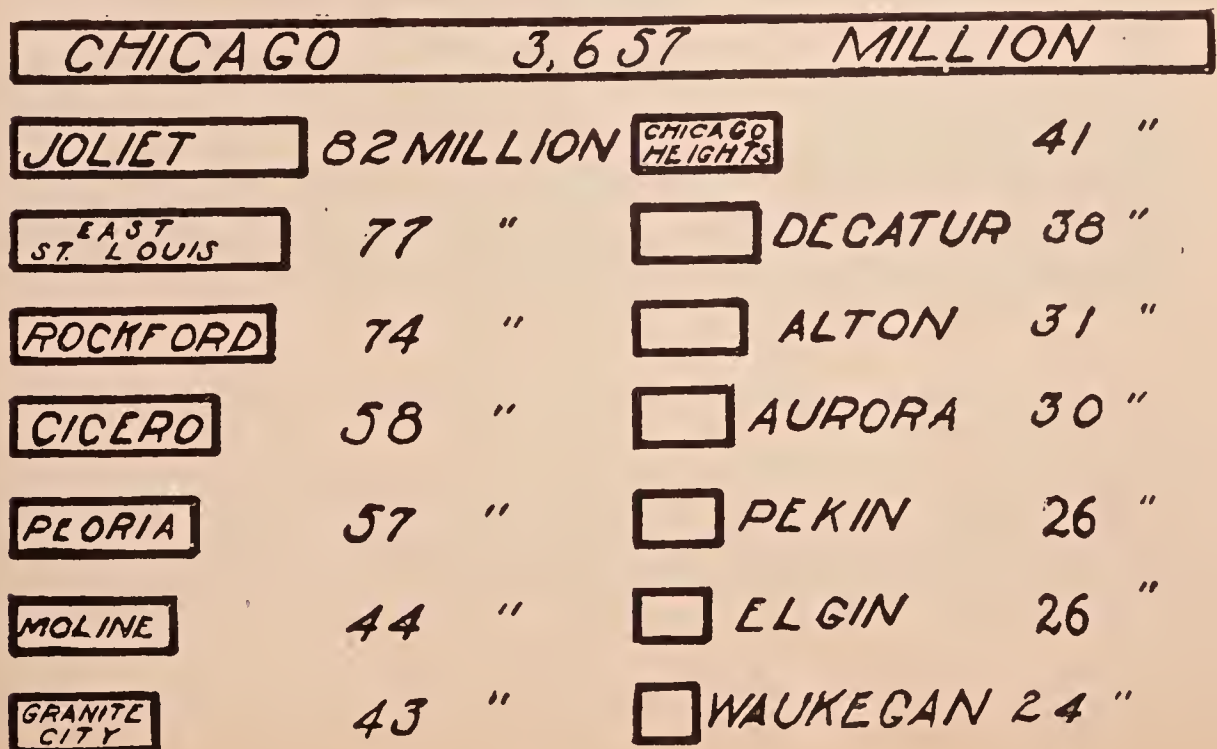 CHICAGO 3,657 MILLION
JOLIET 82 MILLION
EAST
ST. LOUIS 77 "
ROCKFORD 74 "
CICERO 58 "
PEORIA 57 "
MOLINE 44 "
GRANITE
CITY 43 "
CHICAGO
HEIGHTS 41 "
DECATUR 38 "
ALTON 31 "
AURORA 30 "
PEKIN 26 "
ELGIN 26 "
WAUKEGAN 24 "